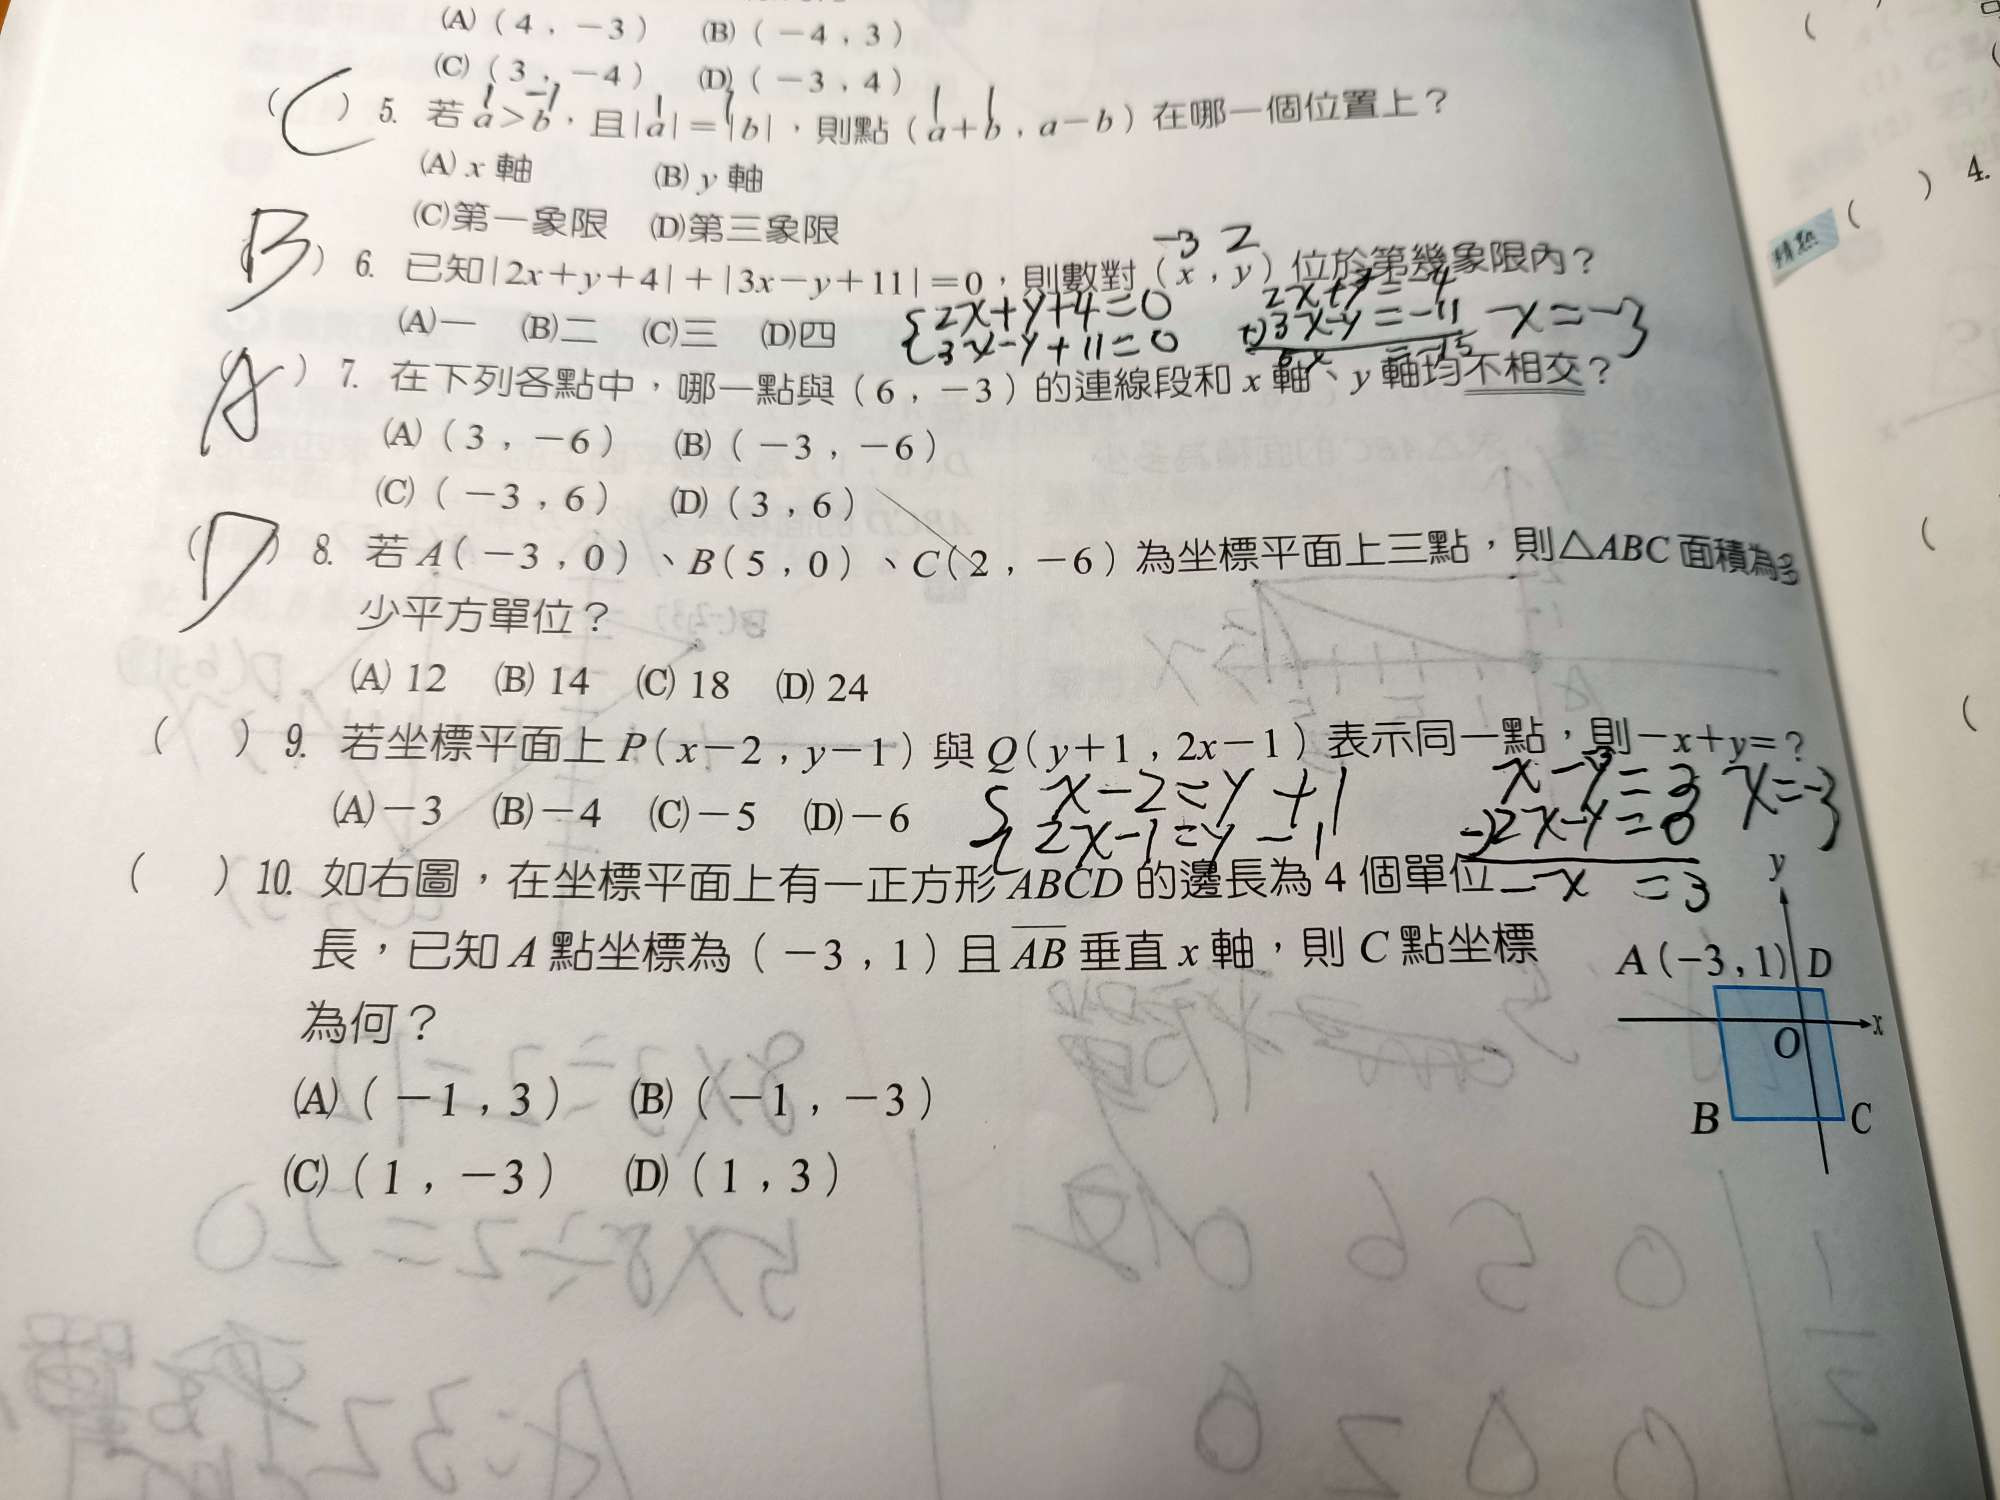 (A)(4,-3) (B)(-4,3)
(C)(3,-4) (D)(-3,4)
1 -1 1 1 1 1
(C) 5. 若 a>b,且|a|=|b|,則點(a+b,a-b)在哪一個位置上?
(A) x 軸 (B) y 軸
(C)第一象限 (D)第三象限
-3 2
(B) 6. 已知|2x+y+4|+|3x-y+11|=0,則數對(x,y)位於第幾象限內?
(A)一 (B)二 (C)三 (D)四
{2x+y+4=0
3x-y+11=0
2x+y=-4
+)3x-y=-11
x=-3
=-15
(A) 7. 在下列各點中,哪一點與(6,-3)的連線段和 x 軸、y 軸均不相交?
(A)(3,-6) (B)(-3,-6)
(C)(-3,6) (D)(3,6)
(D) 8. 若 A(-3,0)、B(5,0)、C(2,-6)為坐標平面上三點,則△ABC 面積為多
少平方單位?
(A) 12 (B) 14 (C) 18 (D) 24
( ) 9. 若坐標平面上 P(x-2,y-1)與 Q(y+1,2x-1)表示同一點,則-x+y=?
(A)-3 (B)-4 (C)-5 (D)-6
{x-2=y+1
2x-1=y-1
x-y=3
-)2x-y=0
-x =3
x=-3
( ) 10. 如右圖,在坐標平面上有一正方形 ABCD 的邊長為 4 個單位
長,已知 A 點坐標為(-3,1)且 AB 垂直 x 軸,則 C 點坐標
為何?
(A)(-1,3) (B)(-1,-3)
(C)(1,-3) (D)(1,3)
y
A(-3,1) D
x
O
B C
精熟
4.